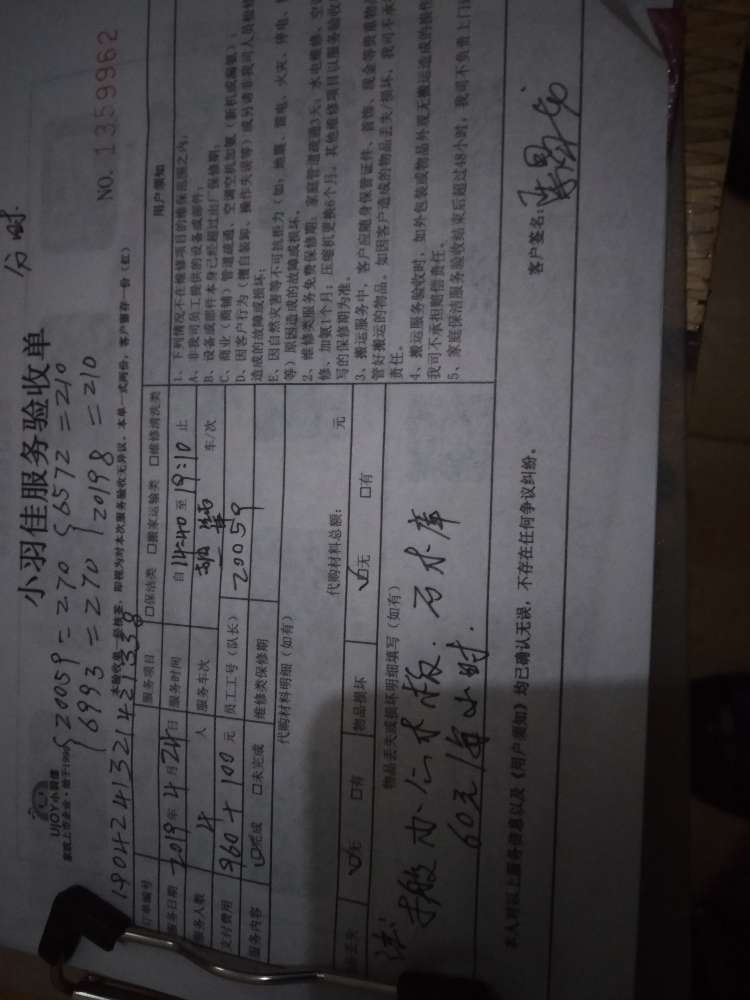 分时
小羽佳服务验收单
NO. 1359962
UJOY小羽佳
家政上市企业·始于1998
20059=270 6572=210
6993=270 20198=210
本验收单一经核签，即视为对本次服务验收无异议。本单一式两份，客户留存一份（红）
订单编号 1904241321421338
服务项目 □保洁类 □搬家运输类 □维修清洗类
服务日期 2019年4月24日 服务时间 自14:40至19:10止
服务人数 4人 服务车次 车/次
支付费用 960+100元 员工工号（队长） 20059
服务内容 ☑完成 □未完成 维修类保修期
代购材料明细（如有）
代购材料总额： 元
丢失 ☑无 □有 物品损坏 ☑无 □有
物品丢失或损坏明细填写（如有）
60元/每小时.
用户须知
1、下列情况不在维修项目的维保范围之内：
A、非我司员工提供的设备或部件；
B、设备或部件本身已经超过出厂保修期；
C、商业（商铺）管道疏通、空调空机加氨（新机或漏氨）；
D、因客户行为（擅自装卸、操作失误等）或另请非我司人员检修
造成的故障或损坏；
E、因自然灾害等不可抗拒力（如：地震、雷电、火灾、停电、
等）原因造成的故障或损坏。
2、维修类服务免费保修期：家庭管道疏通3天；水电维修、空
修、加氨1个月；压缩机更换6个月。其他维修项目以服务验收
写的保修期为准。
3、搬运服务中，客户应随身保管证件、首饰、现金等贵重物
管好搬运的物品。如因客户造成的物品丢失/损坏，我司不承
责任。
4、搬运服务验收时，如外包装或物品外观无搬运造成的损
我司不承担赔偿责任。
5、家庭保洁服务验收结束后超过48小时，我司不负责上门
本人对以上服务信息以及《用户须知》均已确认无误，不存在任何争议纠纷。
客户签名：